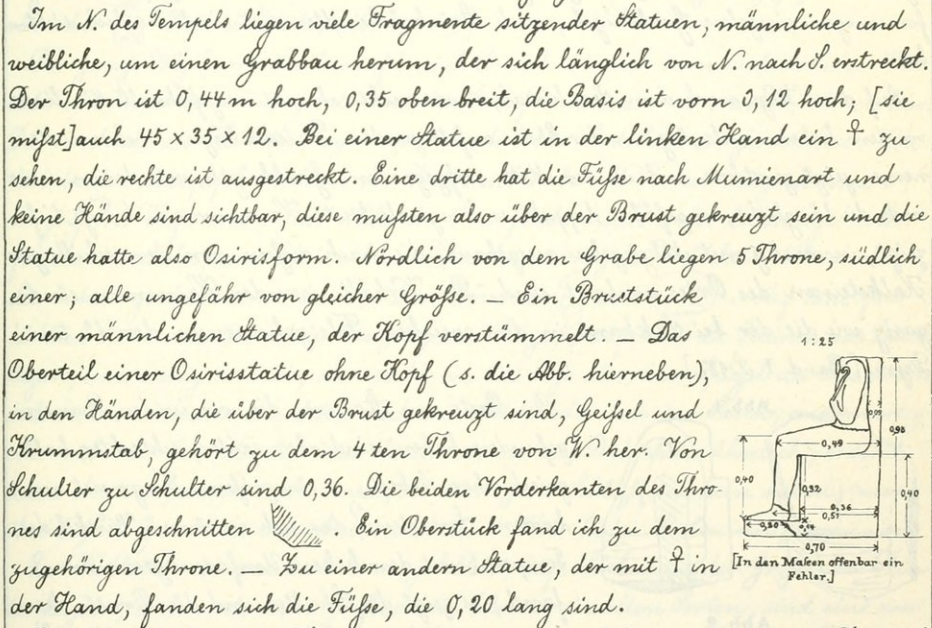 Im N. des Tempels liegen viele Fragmente sitzender Statuen, männliche und
weibliche, um einen Grabbau herum, der sich länglich von N. nach S. erstreckt.
Der Thron ist 0,44 m hoch, 0,35 oben breit, die Basis ist vorn 0,12 hoch; [sie
mifst] auch 45 x 35 x 12. Bei einer Statue ist in der linken Hand ein ☥ zu
sehen, die rechte ist ausgestreckt. Eine dritte hat die Füfse nach Mumienart und
keine Hände sind sichtbar, diese mufsten also über der Brust gekreuzt sein und die
Statue hatte also Osirisform. Nördlich von dem Grabe liegen 5 Throne, südlich
einer; alle ungefähr von gleicher Gröfse. – Ein Bruststück
einer männlichen Statue, der Kopf verstümmelt. – Das
Oberteil einer Osirisstatue ohne Kopf (s. die Abb. hierneben),
in den Händen, die über der Brust gekreuzt sind, Geifsel und
Krummstab, gehört zu dem 4ten Throne von W. her. Von
Schulter zu Schulter sind 0,36. Die beiden Vorderkanten des Thro-
nes sind abgeschnitten . Ein Oberstück fand ich zu dem
zugehörigen Throne. – Zu einer andern Statue, der mit ☥ in
der Hand, fanden sich die Füfse, die 0,20 lang sind.
1:25
0,98
0,49
0,40
0,32
0,36
0,51
0,40
0,20
0,70
[In den Mafsen offenbar ein
Fehler.]